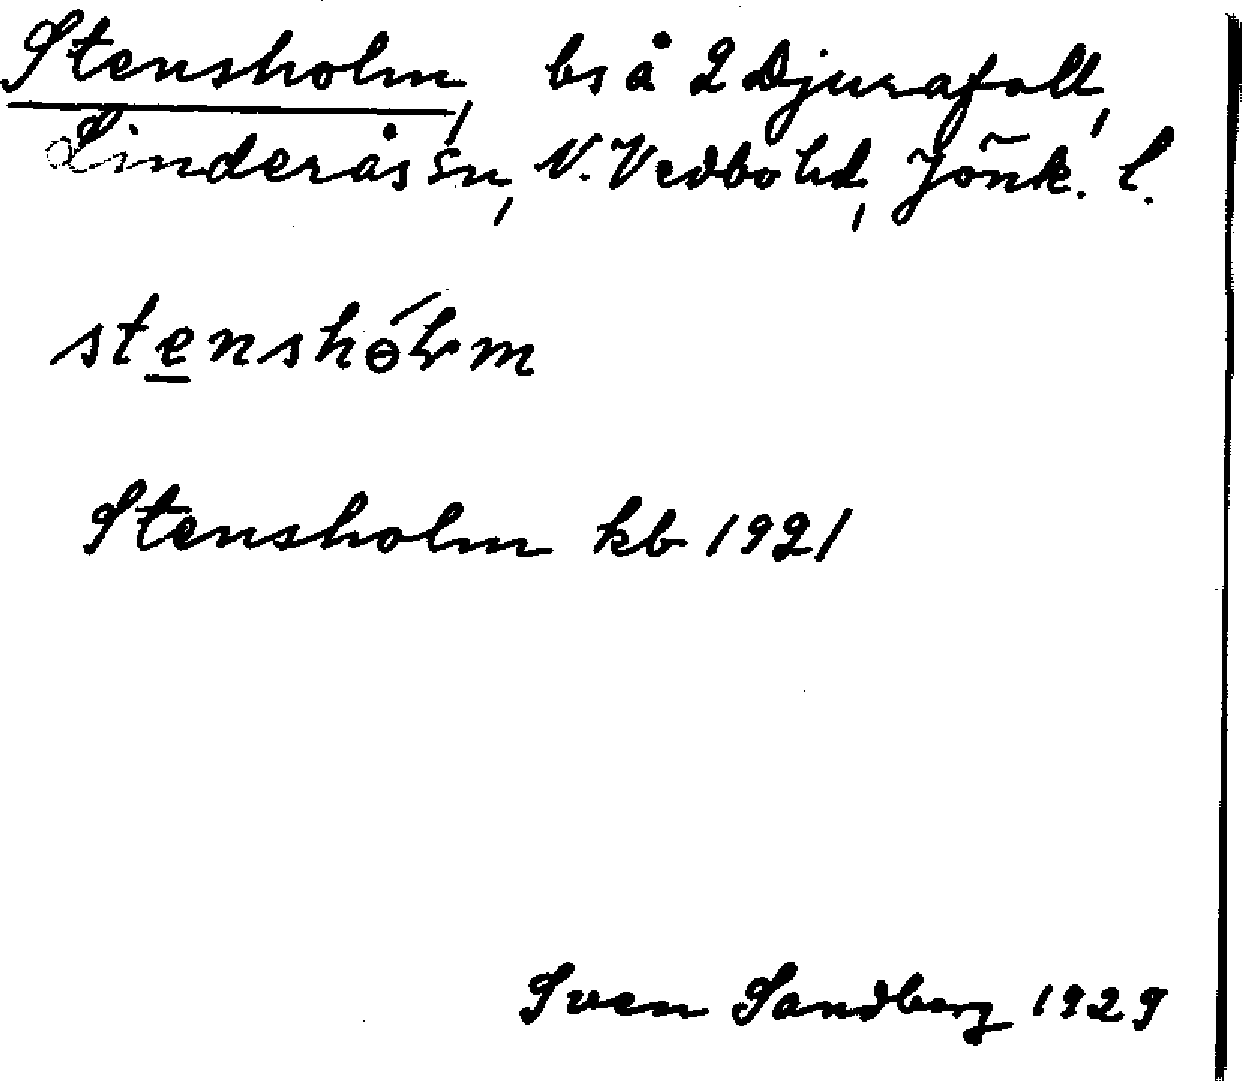 Stensholm, bs å 2 Djurafall,
Linderås sn, N. Vedbo hd, Jönk. l.
stenshɵ́lm
Stensholm kb 1921
Sven Sandberg 1929